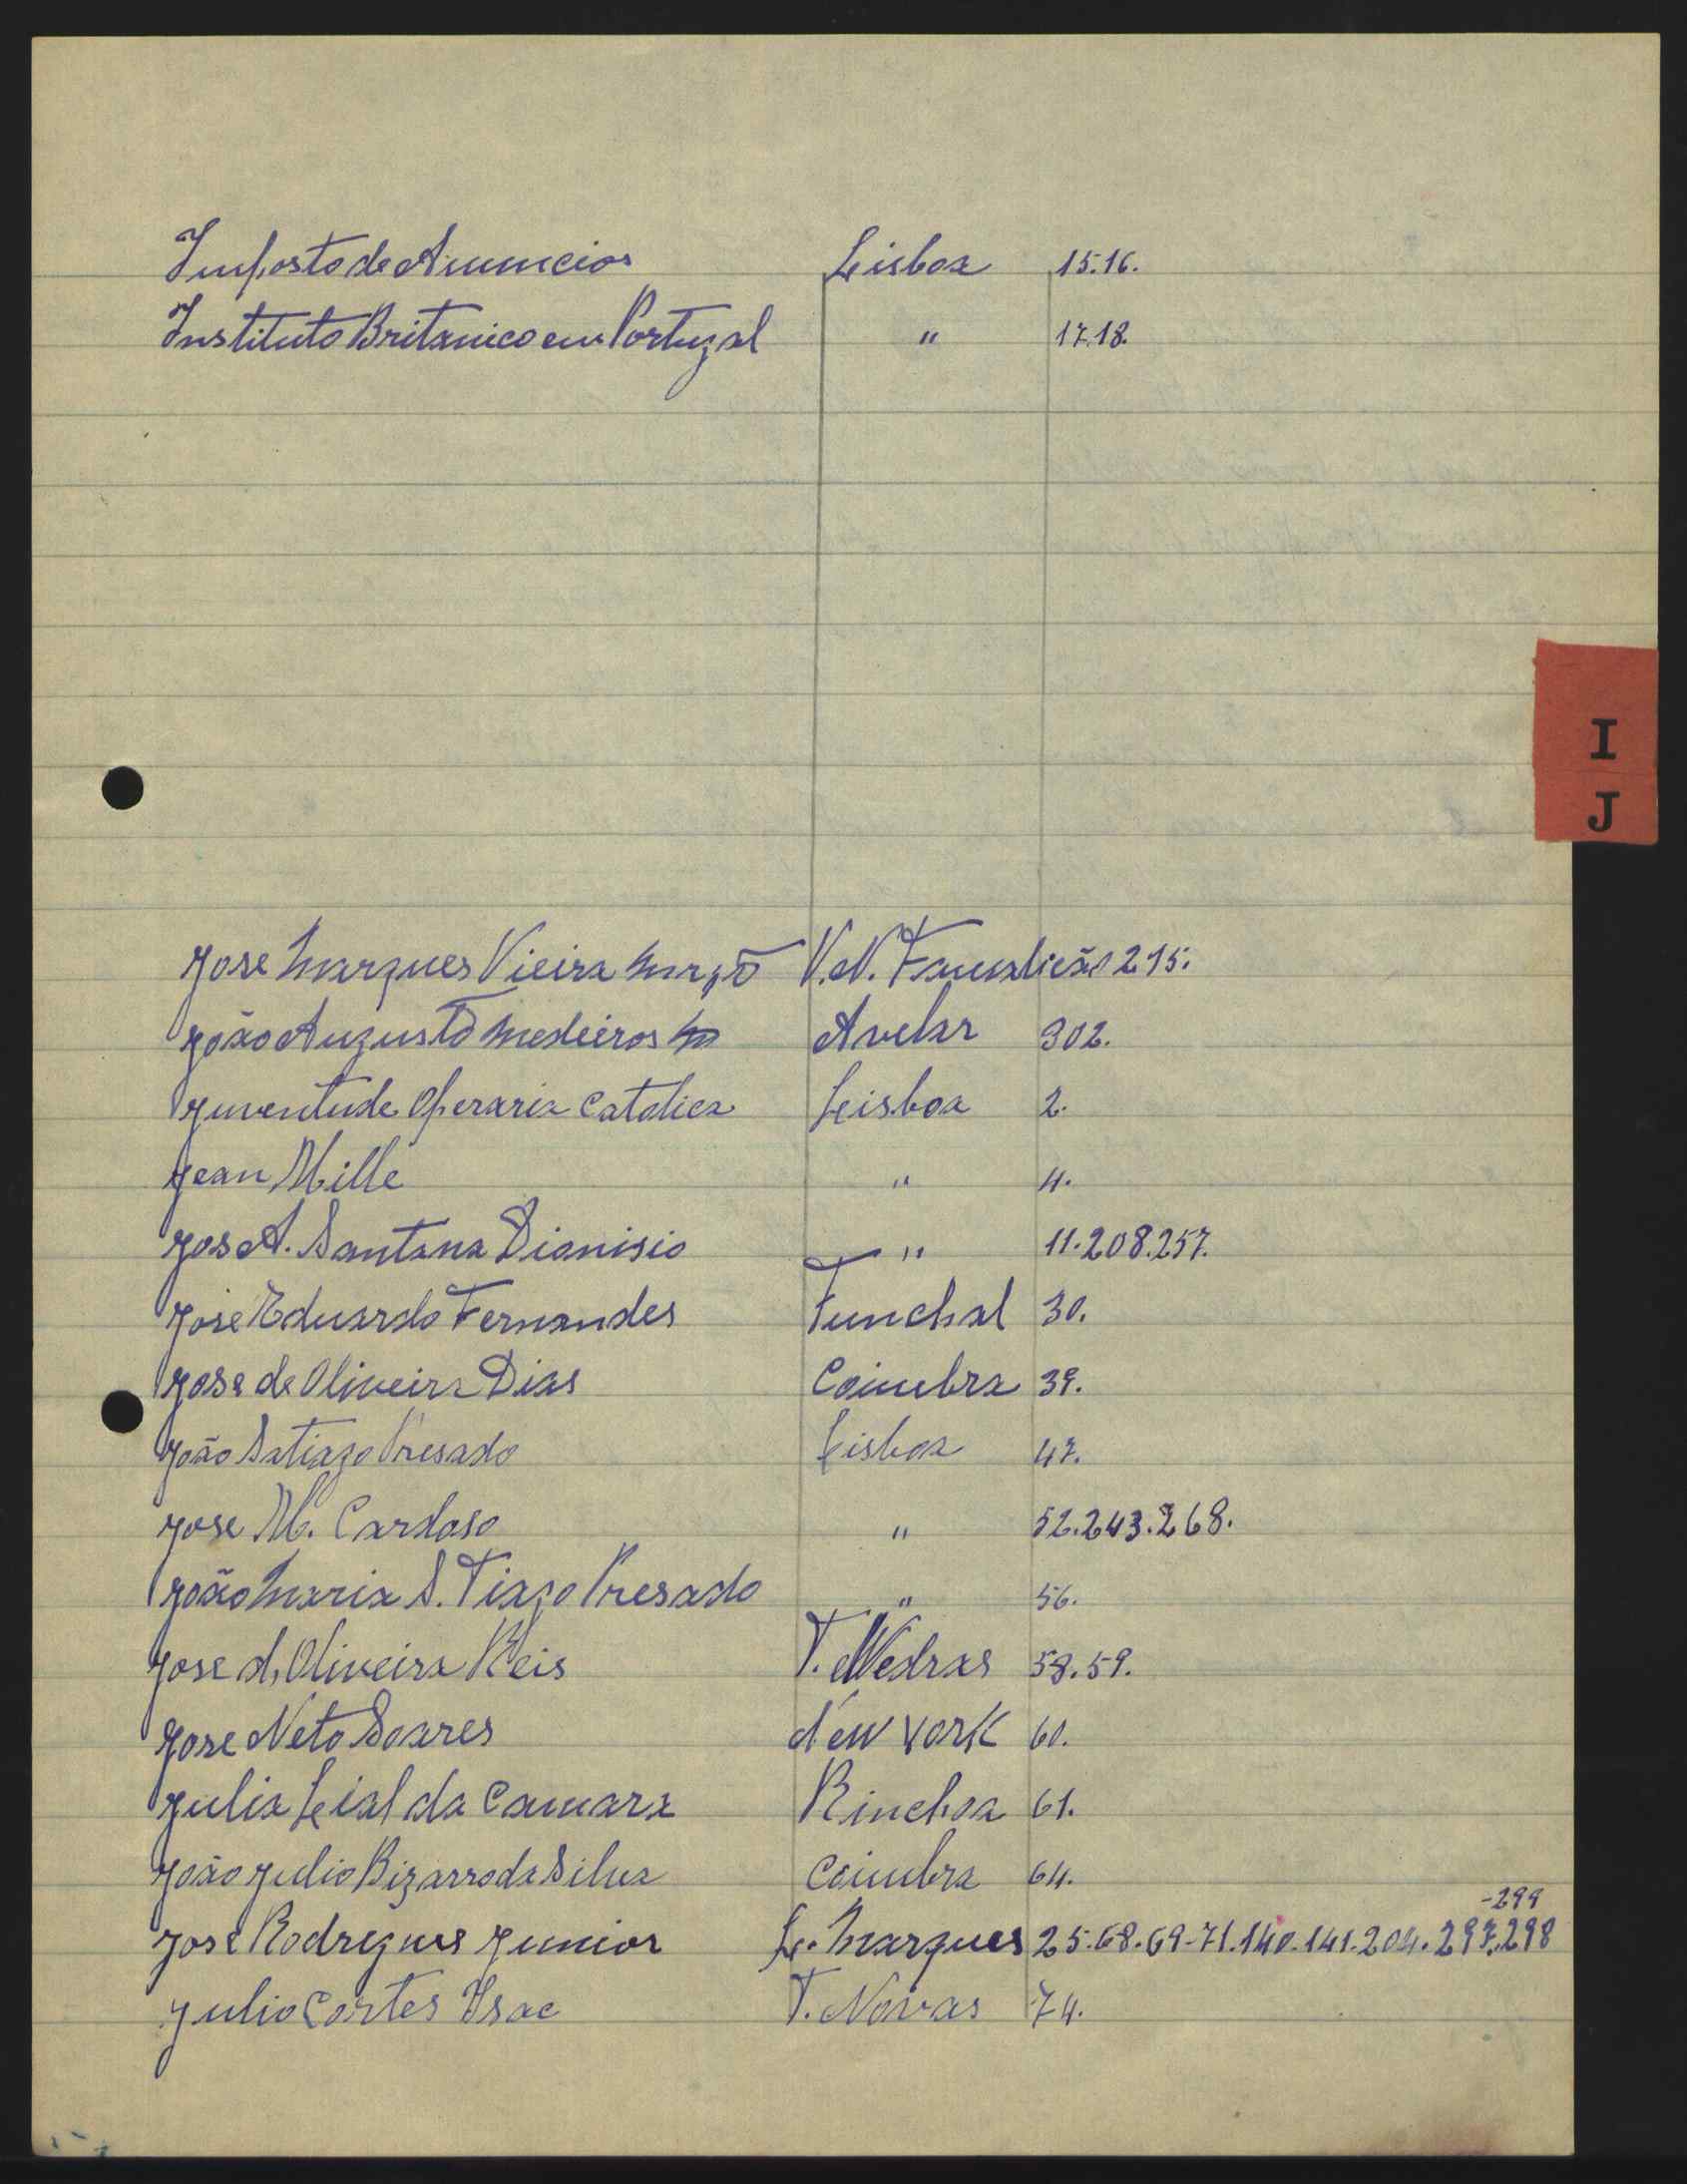 Imposto de Anuncios Lisboa 15.16.
Instituto Britanico em Portugal " 17.18.
I
J
Jose Marques Vieira V.N. Famalicão 215.
João Augusto Medeiros Avelar 302.
Juventude Operaria Catolica Lisboa 2.
Jean Mille " 4.
Jose A. Santana Dionisio " 11.208.257.
José Eduardo Fernandes Funchal 30.
Jose de Oliveira Dias Coimbra 39.
João Satiago Presado Lisboa 47.
Jose M. Cardoso " 52.243.268.
João Maria S. Tiago Presado " 56.
Jose d'Oliveira Reis T. Vedras 58.59.
Jose Neto Soares New York 60.
Julia Leial da Camara Rinchoa 61.
João Julio Bizarro da Silva Coimbra 64.
-299
Jose Rodrigues Junior L. Marques 25.68.69-71.140.141.204.297.298
Julio Cortes Isac T. Novas 74.